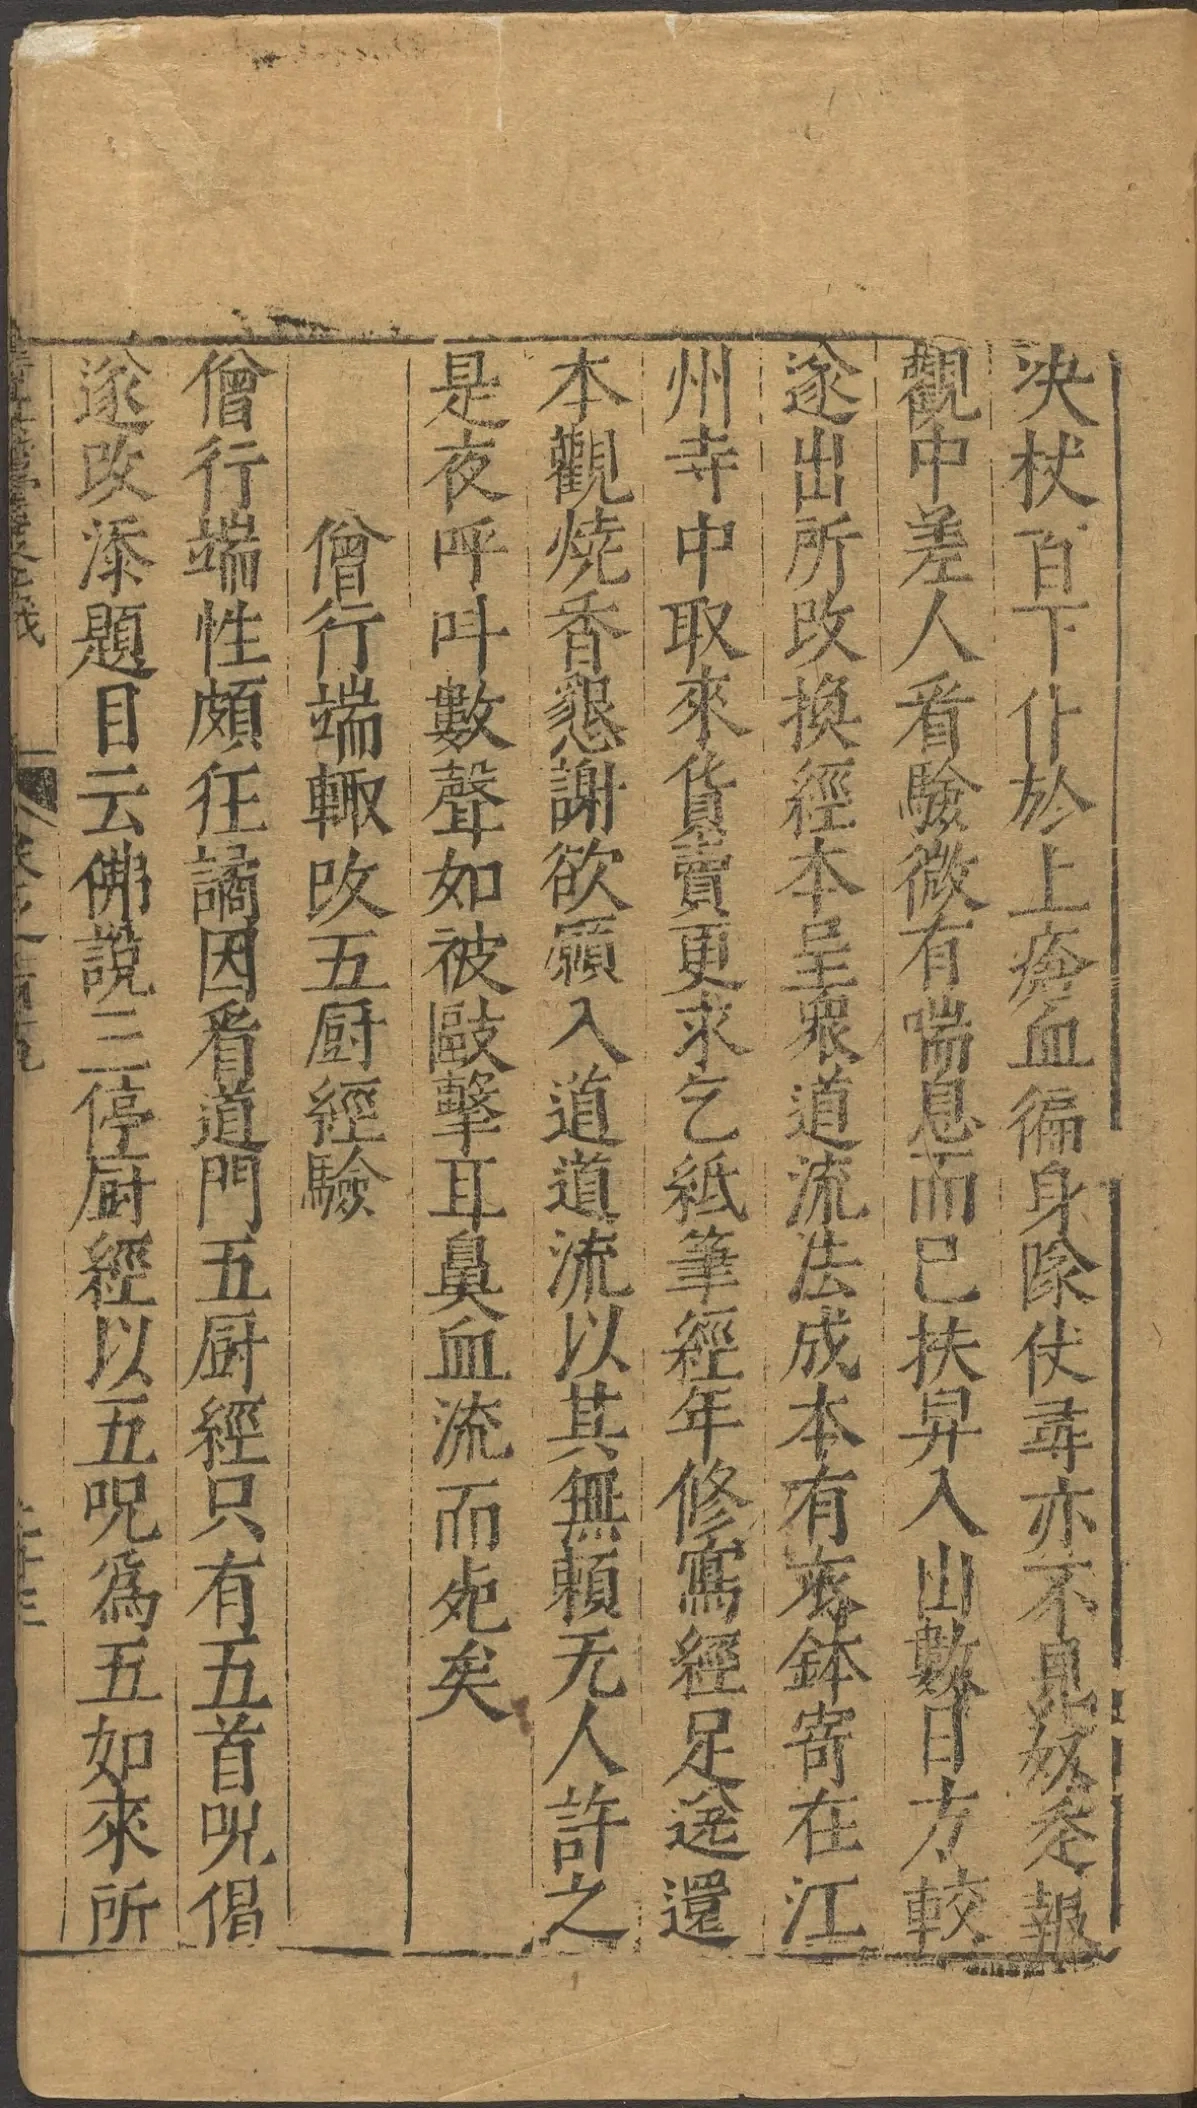 决杖百下仆於上瘡血徧身隊仗尋亦不見奴差報
觀中差人看驗微有喘息而已扶舁入山數日方較
遂出所攺換經本呈衆道流法成本有衣鉢寄在江
州寺中取來貨賣更求乞紙筆經年修寫經足送還
本觀焼香懇謝欲願入道道流以其無頼无人許之
是夜呼呌數聲如被毆擊耳鼻血流而死矣
僧行端輙攺五厨經驗
僧行端性頗狂譎因看道門五厨經只有五首呪偈
遂攺添題目云佛說三停厨經以五呪爲五如來所